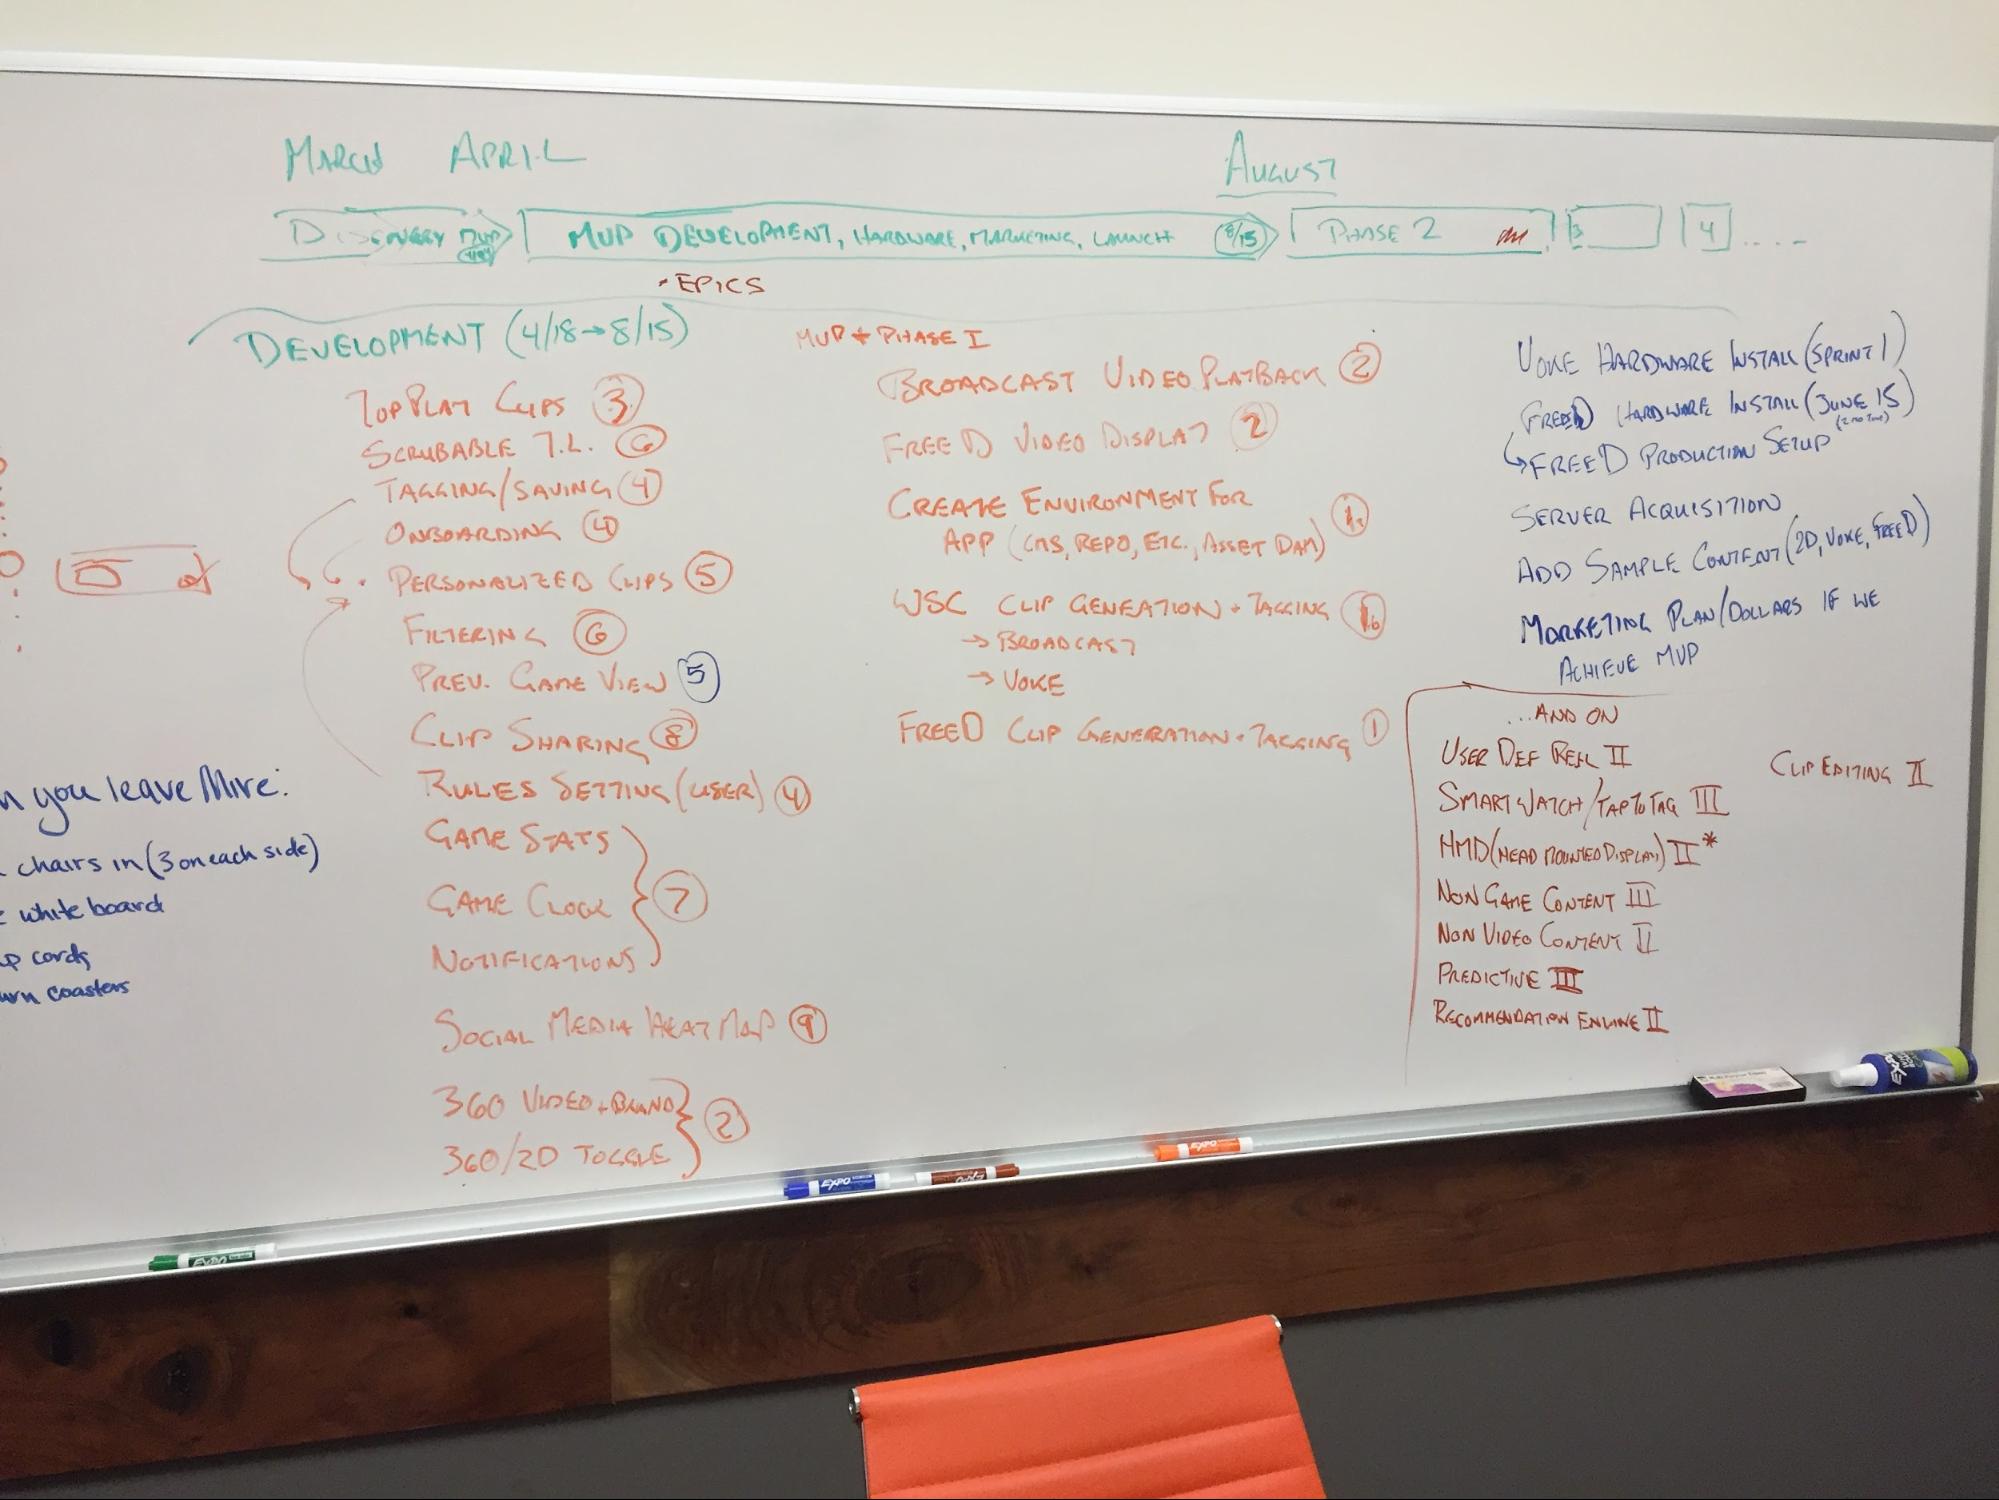 MARCH APRIL
AUGUST
DISCOVERY MVP
MVP DEVELOPMENT, HARDWARE, MARKETING, LAUNCH 8/15
PHASE 2
3
4 ....
• EPICS
DEVELOPMENT (4/18→8/15)
MVP + PHASE I
TOP PLAY CLIPS 3
SCRUBABLE T.L. 6
TAGGING/SAVING 4
ONBOARDING 4
PERSONALIZED CLIPS 5
FILTERING 6
PREV. GAME VIEW 5
CLIP SHARING 8
RULES SETTING (USER) 4
GAME STATS
GAME CLOCK
NOTIFICATIONS
7
SOCIAL MEDIA HEAT MAP 9
360 VIDEO + BRAND
360/2D TOGGLE
2
BROADCAST VIDEO PLAYBACK 2
FREE D VIDEO DISPLAY 2
CREATE ENVIRONMENT FOR
APP (CMS, REPO, ETC., ASSET DAM)
WSC CLIP GENEATION + TAGGING
→ BROADCAST
→ VOKE
FREED CLIP GENERATION + TAGGING 1
VOKE HARDWARE INSTALL (SPRINT 1)
FREED HARDWARE INSTALL (JUNE 15)
↳ FREED PRODUCTION SETUP
SERVER ACQUISITION
ADD SAMPLE CONTENT (2D, VOKE, FREED)
MARKETING PLAN/DOLLARS IF WE
ACHIEVE MVP
...AND ON
USER DEF REEL II
SMARTWATCH/TAP TO TAG III
HMD (HEAD MOUNTED DISPLAY) II*
NON GAME CONTENT III
NON VIDEO CONTENT II
PREDICTIVE III
RECOMMENDATION ENGINE II
CLIP EDITING II
you leave Mire:
chairs in (3 on each side)
white board
cords
coasters
EXPO
EXPO
EXPO
EXPO
EXPO